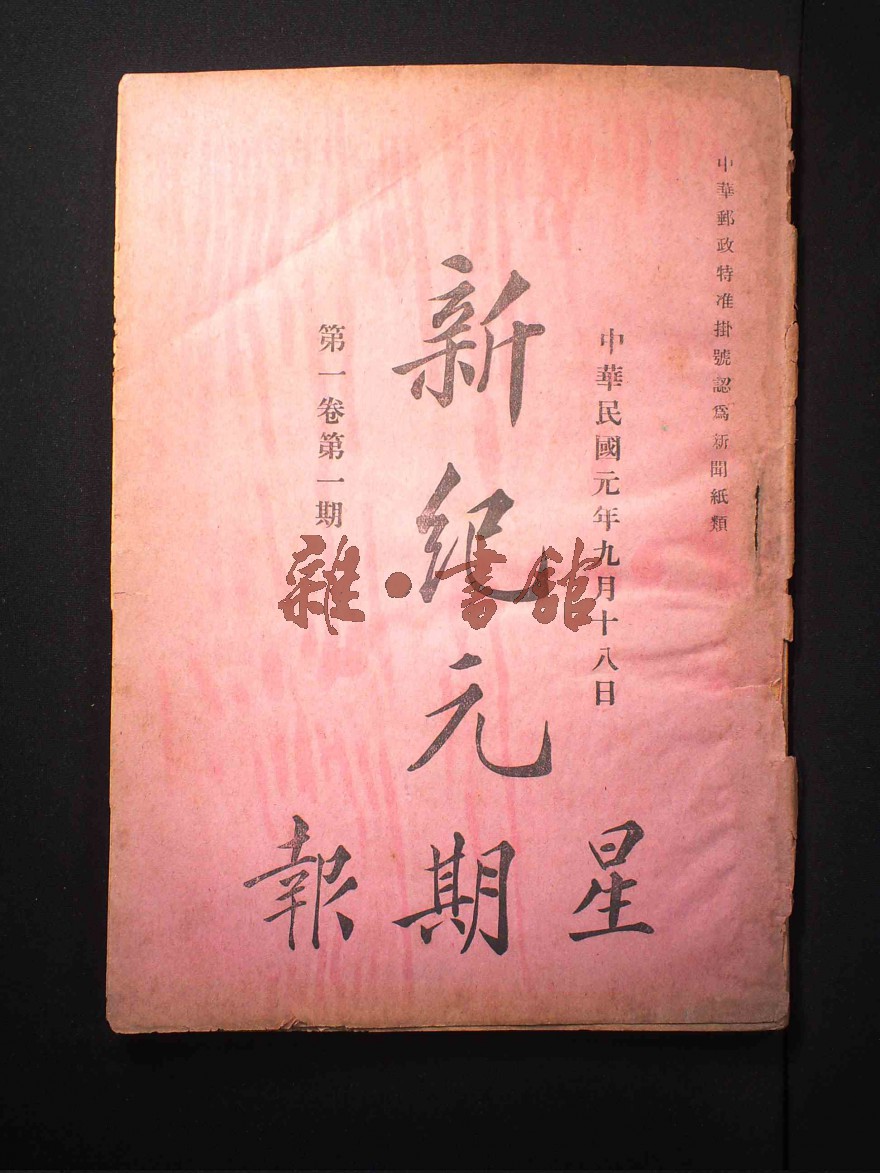 中華郵政特准掛號認爲新聞紙類
中華民國元年九月十八日
新紀元
星期報
第一卷第一期
雜·書館